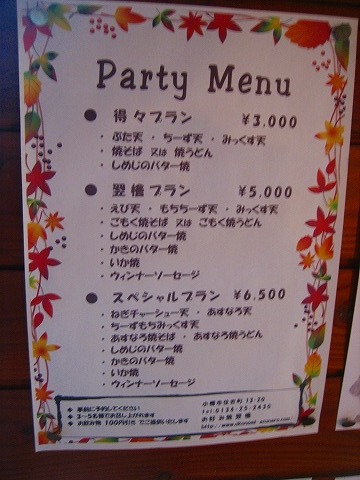 Party Menu
● 得々プラン ￥3,000
・ ぶた天 ・ ちーず天 ・ みっくす天
・ 焼そば 又は 焼うどん
・ しめじのバター焼
● 翌檜プラン ￥5,000
・ えび天 ・ もちちーず天 ・ みっくす天
・ ごもく焼そば 又は ごもく焼うどん
・ しめじのバター焼
・ かきのバター焼
・ いか焼
・ ウィンナーソーセージ
● スペシャルプラン ￥6,500
・ ねぎチャーシュー天 ・ あすなろ天
・ ちーずもちみっくす天
・ あすなろ焼そば ・ あすなろ焼うどん
・ しめじのバター焼
・ かきのバター焼
・ いか焼
・ ウィンナーソーセージ
◆ 事前に予約してください
◆ 2～5名様でお召し上がれます
◆ お飲み物 100円引き でご提供いたします
小樽市住吉町 13-20
tel:0134-25-2430
お好み焼 翌檜